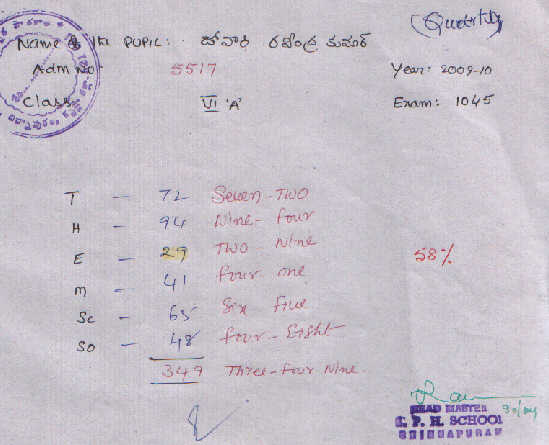 (Quarterly)
Name of the PUPIL: జోవారి రవీంద్ర కుమార్
Adm No 5517 Year: 2009-10
Class VI 'A' Exam: 1045
T - 72 Seven-Two
H - 94 Nine-four
E - 29 Two-Nine
M - 41 four one
Sc - 65 Six five
So - 48 four-Eight
349 Three-four Nine.
58%
HEAD MASTER
Z. P. H. SCHOOL